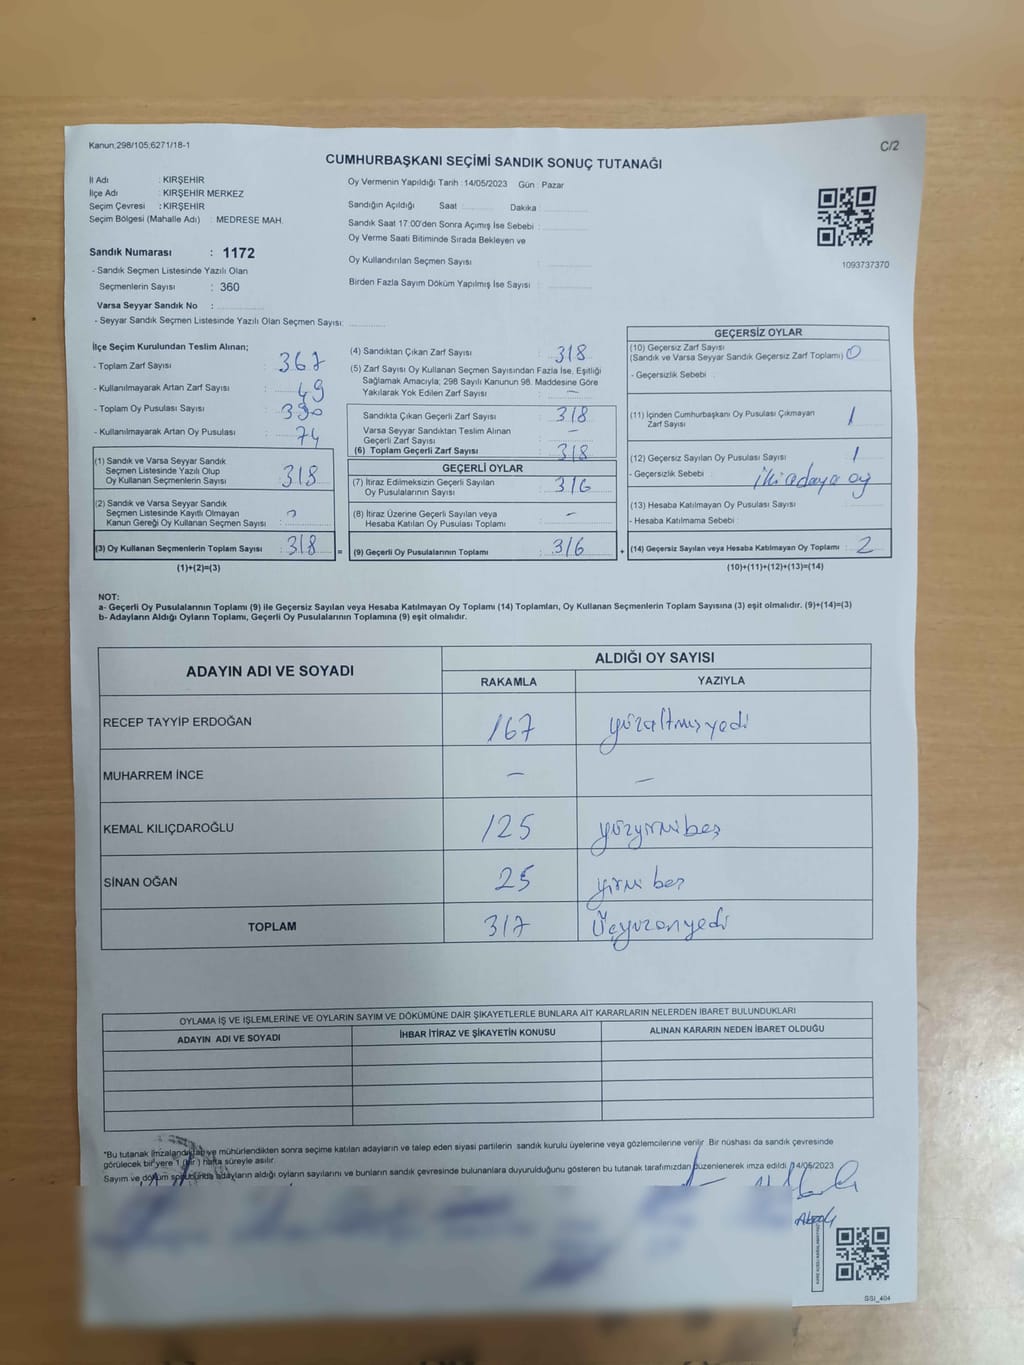 Kanun,298/105;6271/18-1
C/2
CUMHURBAŞKANI SEÇİMİ SANDIK SONUÇ TUTANAĞI
İl Adı : KIRŞEHİR
İlçe Adı : KIRŞEHİR MERKEZ
Seçim Çevresi : KIRŞEHİR
Seçim Bölgesi (Mahalle Adı) : MEDRESE MAH.
Sandık Numarası : 1172
- Sandık Seçmen Listesinde Yazılı Olan
Seçmenlerin Sayısı : 360
Varsa Seyyar Sandık No :
- Seyyar Sandık Seçmen Listesinde Yazılı Olan Seçmen Sayısı:
Oy Vermenin Yapıldığı Tarih : 14/05/2023 Gün : Pazar
Sandığın Açıldığı Saat : Dakika :
Sandık Saat 17.00'den Sonra Açımış İse Sebebi :
Oy Verme Saati Bitiminde Sırada Bekleyen ve
Oy Kullandırılan Seçmen Sayısı :
Birden Fazla Sayım Döküm Yapılmış İse Sayısı :
1093737370
İlçe Seçim Kurulundan Teslim Alınan;
- Toplam Zarf Sayısı : 367
- Kullanılmayarak Artan Zarf Sayısı : 49
- Toplam Oy Pusulası Sayısı : 390
- Kullanılmayarak Artan Oy Pusulası : 74
(1) Sandık ve Varsa Seyyar Sandık
Seçmen Listesinde Yazılı Olup
Oy Kullanan Seçmenlerin Sayısı : 318
(2) Sandık ve Varsa Seyyar Sandık
Seçmen Listesinde Kayıtlı Olmayan
Kanun Gereği Oy Kullanan Seçmen Sayısı :
(3) Oy Kullanan Seçmenlerin Toplam Sayısı : 318 =
(1)+(2)=(3)
(4) Sandıktan Çıkan Zarf Sayısı : 318
(5) Zarf Sayısı Oy Kullanan Seçmen Sayısından Fazla İse, Eşitliği
Sağlamak Amacıyla; 298 Sayılı Kanunun 98. Maddesine Göre
Yakılarak Yok Edilen Zarf Sayısı : -
Sandıkta Çıkan Geçerli Zarf Sayısı : 318
Varsa Seyyar Sandıktan Teslim Alınan
Geçerli Zarf Sayısı : -
(6) Toplam Geçerli Zarf Sayısı : 318
GEÇERLİ OYLAR
(7) İtiraz Edilmeksizin Geçerli Sayılan
Oy Pusulalarının Sayısı : 316
(8) İtiraz Üzerine Geçerli Sayılan veya
Hesaba Katılan Oy Pusulası Toplamı : -
(9) Geçerli Oy Pusulalarının Toplamı : 316 +
GEÇERSİZ OYLAR
(10) Geçersiz Zarf Sayısı
(Sandık ve Varsa Seyyar Sandık Geçersiz Zarf Toplamı) : 0
- Geçersizlik Sebebi :
(11) İçinden Cumhurbaşkanı Oy Pusulası Çıkmayan
Zarf Sayısı : 1
(12) Geçersiz Sayılan Oy Pusulası Sayısı : 1
- Geçersizlik Sebebi : iki adaya oy
(13) Hesaba Katılmayan Oy Pusulası Sayısı :
- Hesaba Katılmama Sebebi :
(14) Geçersiz Sayılan veya Hesaba Katılmayan Oy Toplamı : 2
(10)+(11)+(12)+(13)=(14)
NOT:
a- Geçerli Oy Pusulalarının Toplamı (9) ile Geçersiz Sayılan veya Hesaba Katılmayan Oy Toplamı (14) Toplamları, Oy Kullanan Seçmenlerin Toplam Sayısına (3) eşit olmalıdır. (9)+(14)=(3)
b- Adayların Aldığı Oyların Toplamı, Geçerli Oy Pusulalarının Toplamına (9) eşit olmalıdır.
ADAYIN ADI VE SOYADI ALDIĞI OY SAYISI
RAKAMLA YAZIYLA
RECEP TAYYİP ERDOĞAN 167 yüzaltmışyedi
MUHARREM İNCE - -
KEMAL KILIÇDAROĞLU 125 yüzyirmibeş
SİNAN OĞAN 25 yirmi beş
TOPLAM 317 Üçyüzonyedi
OYLAMA İŞ VE İŞLEMLERİNE VE OYLARIN SAYIM VE DÖKÜMÜNE DAİR ŞİKAYETLERLE BUNLARA AİT KARARLARIN NELERDEN İBARET BULUNDUKLARI
ADAYIN ADI VE SOYADI İHBAR İTİRAZ VE ŞİKAYETİN KONUSU ALINAN KARARIN NEDEN İBARET OLDUĞU
*Bu tutanak imzalandıktan ve mühürlendikten sonra seçime katılan adayların ve talep eden siyasi partilerin sandık kurulu üyelerine veya gözlemcilerine verilir. Bir nüshası da sandık çevresinde
görülecek bir yere 1 (bir) hafta süreyle asılır.
Sayım ve döküm sonucunda adayların aldığı oyların sayılarını ve bunların sandık çevresinde bulunanlara duyurulduğunu gösteren bu tutanak tarafımızdan düzenlenerek imza edildi. 14/05/2023
SSI_404